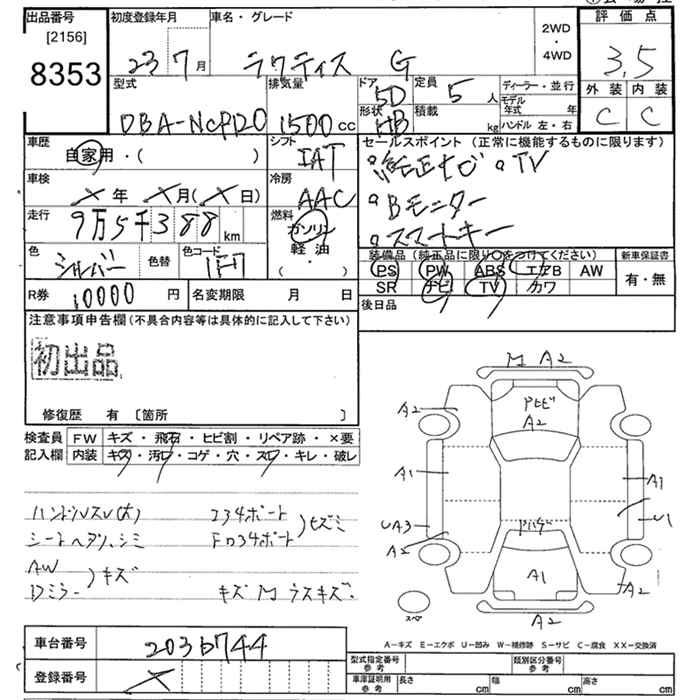 出品番号
[2156]
8353
初度登録年月
23 7月
車名・グレード
ラクティス G
2WD
・
4WD
評価点
3.5
外装 内装
C C
型式
DBA-NCP120
排気量
1500cc
ドア
5D
形状
HB
定員
5人
積載
kg
ディーラー・並行
モデル年式 年
ハンドル 左・右
車歴
自家用・( )
シフト
IAT
セールスポイント(正常に機能するものに限ります)
純正ナビ。TV
。Bモニター
。スマートキー
車検
×年 ×月(×日)
冷房
AAC
走行
9万5千388km
燃料
ガソリン
軽油
・
( )
色
シルバー
色替
色コード
1F7
装備品(純正品に限り○をつけてください)
新車保証書
PS PW ABS エアB AW
SR ナビ TV カワ
有・無
R券 10000円
名変期限 月 日
後日品
注意事項申告欄(不具合内容等は具体的に記入して下さい)
初出品
修復歴 有〔箇所 〕
検査員 FW キズ・飛石・ヒビ割・リペア跡・×要
記入欄 内装 キズ・汚レ・コゲ・穴・スレ・キレ・破レ
M A2
A2 A2
A2
A1 A1
UA3 U1
A2
A1
A2
A2
スペア
シートヘタリ、シミ
AW
Dミラー
キズ
キズ M ラスキズ
車台番号 2036744
登録番号 ×
A-キズ E-エクボ U-凹み W-補修跡 S-サビ C-腐食 XX-交換済
型式指定番号
参考
類別区分番号
参考
車庫証明用
参考
長さ cm 幅 cm 高さ cm